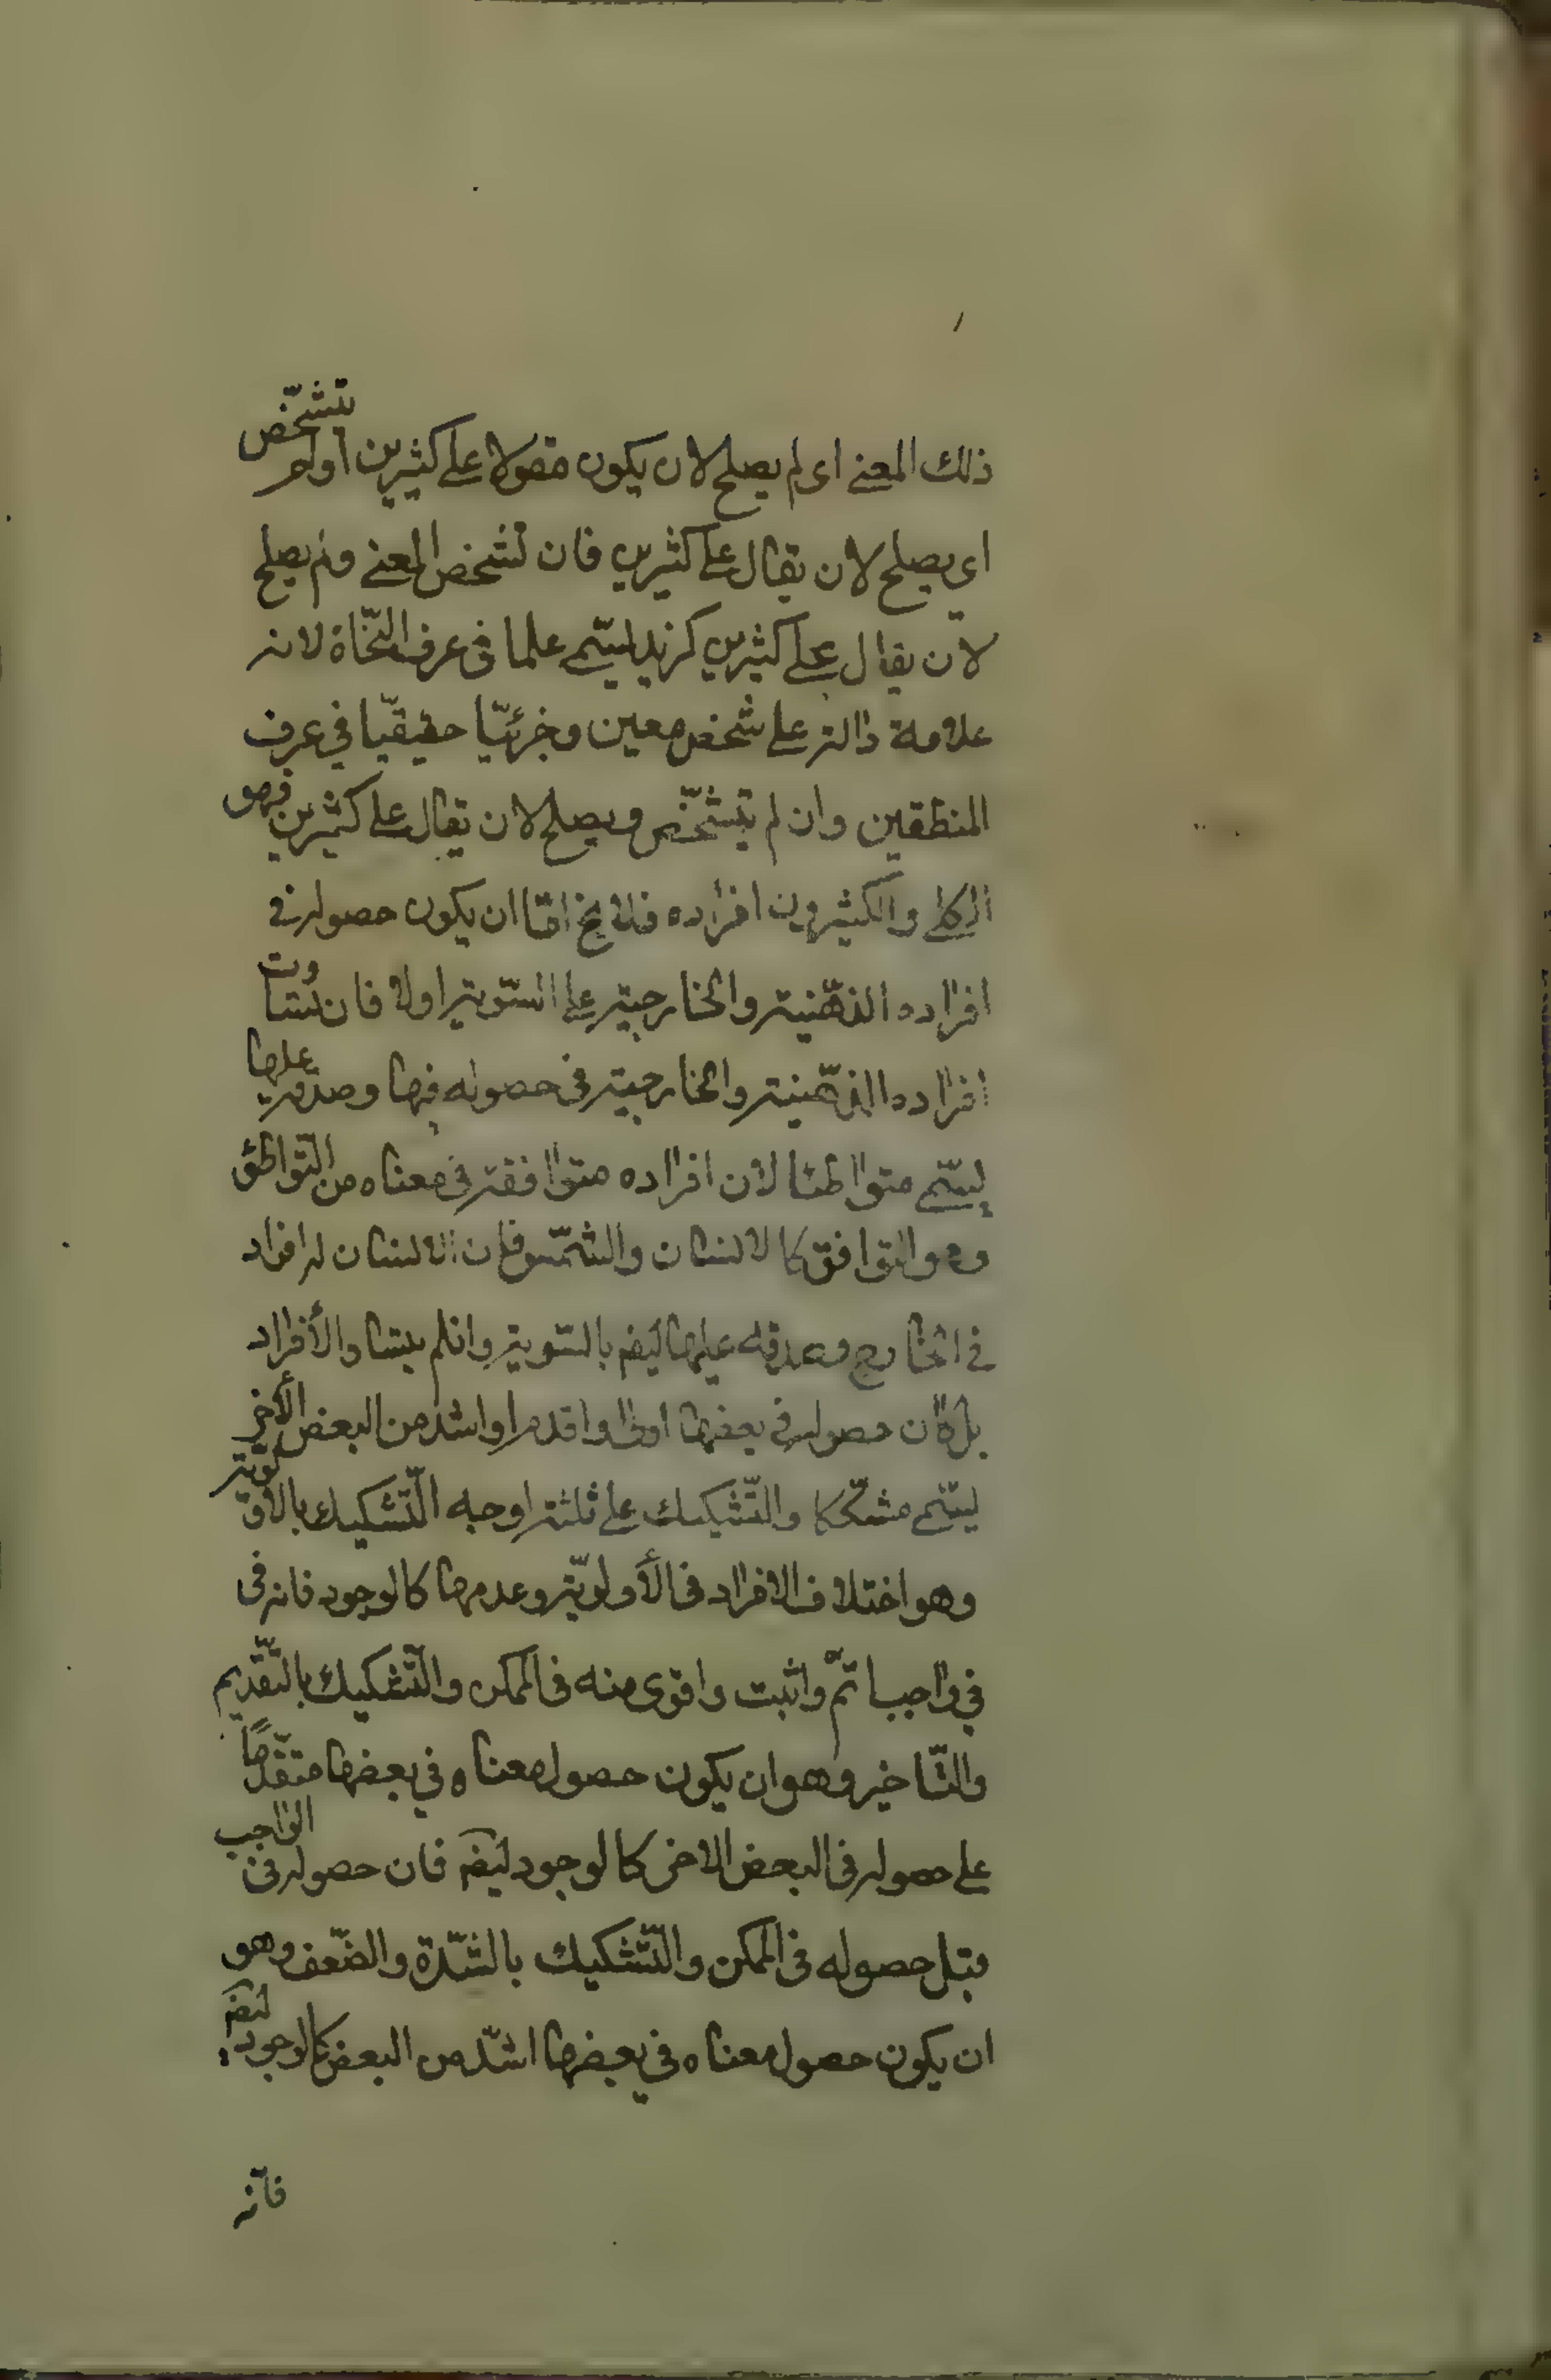 ذلك المعنے اى لم يصلح لان يكون مقولا علے كثيرين اولم يتشخّص
اى يصلح لان يقال علے كثيرين فان تشخص المعنے ولم يصلح
لان يقال علے كثيرين كزيد ليسّمے علما فى عرف النّحاة لانه
علامة دالة على شخص معين وجزئيّا حقيقيّا في عرف
المنطقين وان لم يتشخّص ويصلح لان يقال علے كثيرين فهو
الكلے والكثيرون افراده فلا يخ امّا ان يكون حصوله فى
افراده الذهّنية والخارجية على السّوية اولا فان تساوت
افراده الذهّنية والخارجية فى حصوله فيها وصدقه عليها
ليسّمے متواطئا لان افراده متوافقة فى معناه من التّواطئ
وهو التوافق كالانسان والشّمس فان الانسان له افراد
فى الخارج وصدقه عليها ايضا بالسّوية وانلم يتساو الأفراد
بل كان حصوله فى بعضها اولى واقدم او اشد من البعض الأخر
ليسّمے مشكّكا والتّشكيك على ثلثة اوجه التّشكيك بالاولوّية
وهو اختلاف الافراد فى الأولوّية وعدمها كالوجود فانه فى
في واجب اتّم واثبت واقوى منه فى الممكن والتّشكيك بالتّقديم
والتّاخير وهو ان يكون حصول معناه في بعضها متقّدمًا
على حصوله فى البعض الاخر كالوجود ايضا فان حصوله فى الواجب
قبل حصوله فى الممكن والتّشكيك بالشّدة والضّعف وهو
ان يكون حصول معناه في بعضها اشدّ من البعض كالوجود ايضا
فانّه